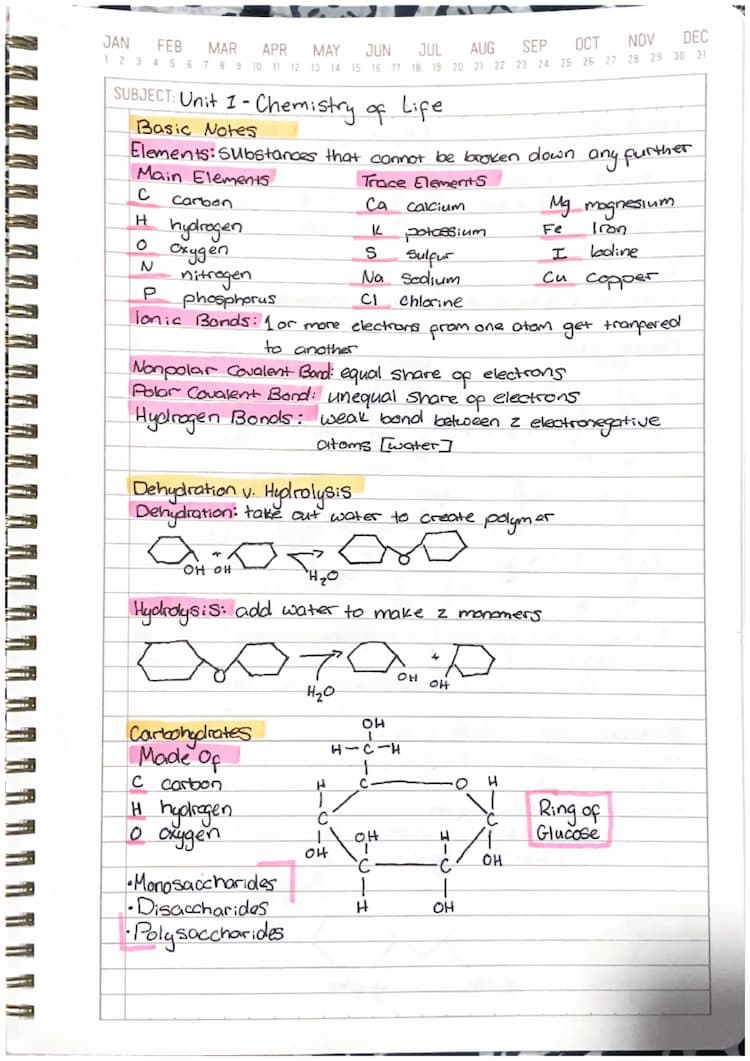 JAN FEB MAR APR MAY JUN JUL AUG SEP OCT NOV DEC
1 2 3 4 5 6 7 8 9 10 11 12 13 14 15 16 17 18 19 20 21 22 23 24 25 26 27 28 29 30 31
SUBJECT: Unit 1 - Chemistry of Life
Basic Notes
Elements: substances that cannot be broken down any further
Main Elements Trace Elements
C carbon Ca calcium Mg magnesium
H hydrogen K potassium Fe Iron
O oxygen S sulfur I Iodine
N nitrogen Na Sodium Cu Copper
P phosphorus Cl Chlorine
Ionic Bonds: 1 or more electrons from one atom get tranfered
to another
Nonpolar Covalent Bond: equal share of electrons
Polar Covalent Bond: unequal share of electrons
Hydrogen Bonds: weak bond between 2 electronegative
atoms [water]
Dehydration v. Hydrolysis
Dehydration: take out water to create polymer
+ O
OH OH H2O
Hydrolysis: add water to make 2 monomers
+
O H2O OH OH
Carbohydrates OH
Made Of H-C-H
C carbon H C O H
H hydrogen C C Ring of
O oxygen OH OH H OH Glucose
C C
•Monosaccharides H OH
•Disaccharides
•Polysaccharides